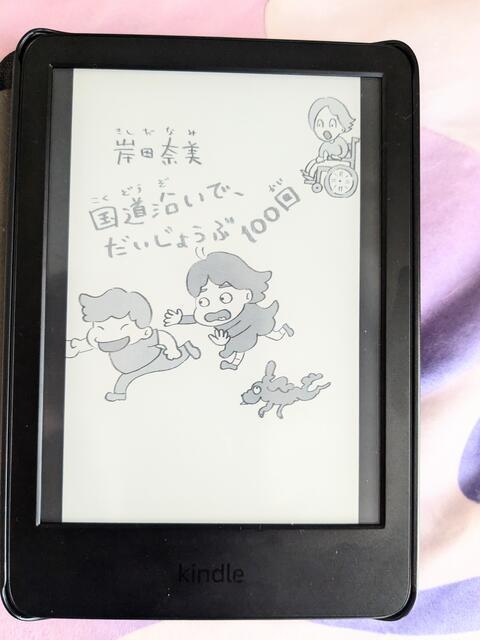 きしだなみ
岸田奈美
こくどうぞ
国道沿いで、
だいじょうぶ100回
かい
kindle